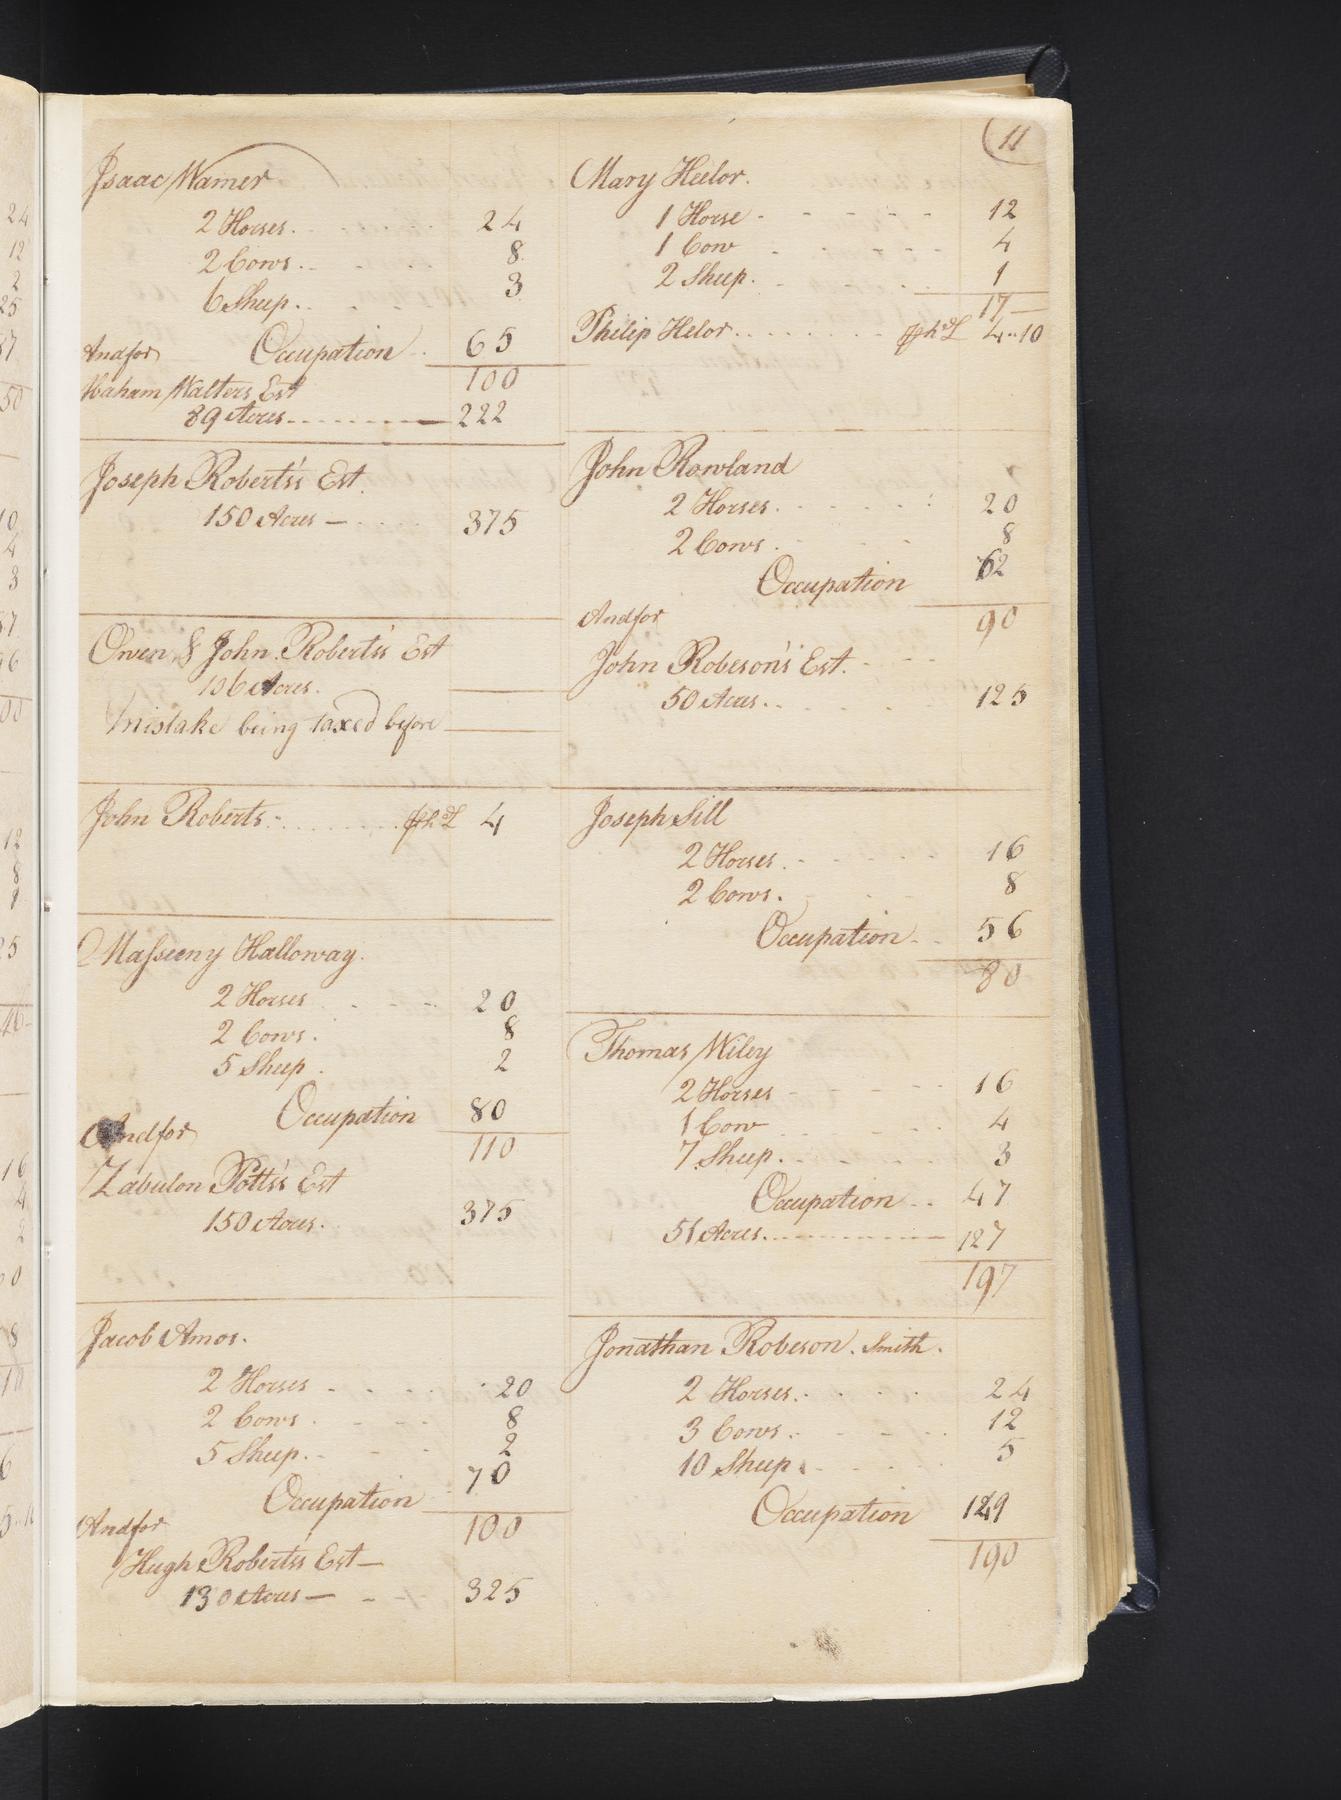 11
Isaac Warner
2 Horses. 24
2 Cows. 8
6 Sheep. 3
And for Occupation 65
100
Abraham Walters Est
89 Acres 222
Joseph Roberts's Est.
150 Acres 375
Owen & John Roberts's Est
106 Acres.
Mistake being taxed before
John Roberts 4
Masseeny Halloway.
2 Horses 20
2 Cows. 8
5 Sheep. 2
Occupation 80
And for 110
Zabulon Potts's Est
150 Acres. 375
Jacob Amos.
2 Horses 20
2 Cows. 8
5 Sheep. 2
Occupation 70
And for 100
Hugh Roberts's Est
130 Acres 325
Mary Heelor.
1 Horse 12
1 Cow 4
2 Sheep. 1
17
Philip Helor 4..10
John Rowland
2 Horses. 20
2 Cows. 8
Occupation 62
And for 90
John Robeson's Est.
50 Acres. 125
Joseph Sill
2 Horses. 16
2 Cows. 8
Occupation 56
80
Thomas Wiley
2 Horses 16
1 Cow 4
7 Sheep. 3
Occupation 47
51 Acres. 127
197
Jonathan Robeson. Smith.
2 Horses. 24
3 Cows. 12
10 Sheep. 5
Occupation 149
190